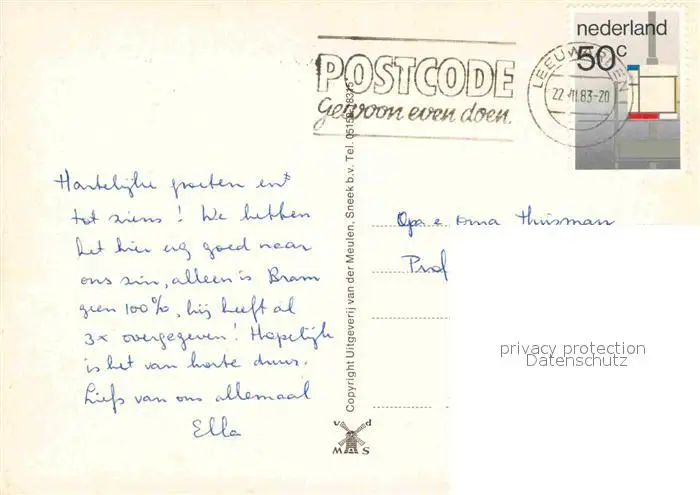 nederland
50c
POSTCODE
Gewoon even doen.
LEEUWARDEN
22.VII.83-20
Hartelijke groeten en
tot ziens! We hebben
het hier erg goed naar
ons zin, alleen is Bram
geen 100%, hij heeft al
3x overgegeven! Hopelijk
is het van korte duur.
Liefs van ons allemaal
Ella
Copyright Uitgeverij van der Meulen, Sneek b.v. Tel. 05150-
v d
M S
Opa & oma Huisman
Prof
privacy protection
Datenschutz